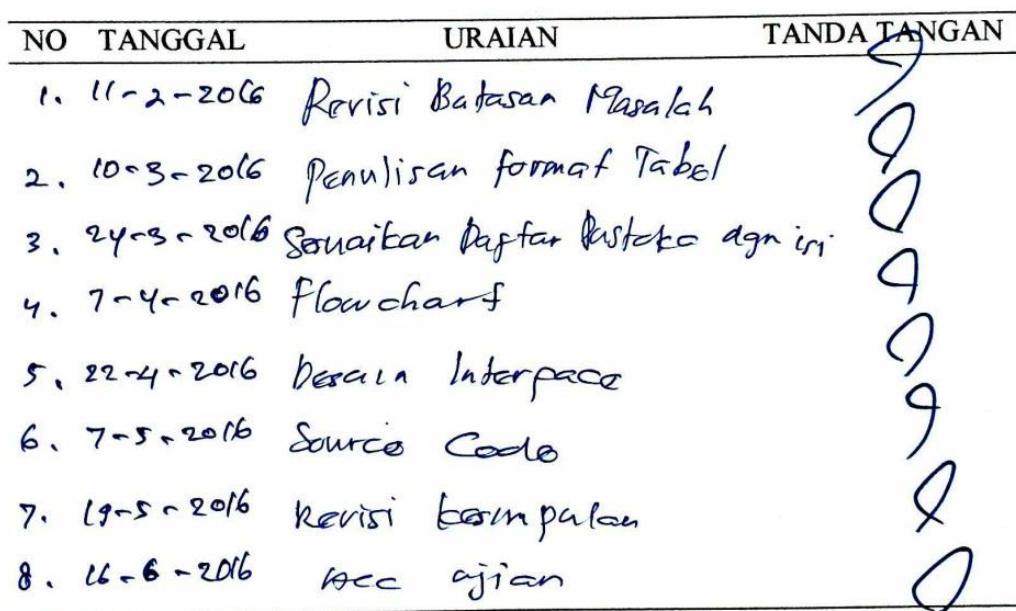 NO TANGGAL URAIAN TANDA TANGAN
1. 11-2-2016 Revisi Batasan Masalah
2. 10-3-2016 Penulisan format Tabel
3. 24-3-2016 Sesuaikan Daftar Pustaka dgn isi
4. 7-4-2016 Flowchart
5. 22-4-2016 Desain Interpace
6. 7-5-2016 Source Code
7. 19-5-2016 Revisi kesimpulan
8. 16-6-2016 Acc ujian